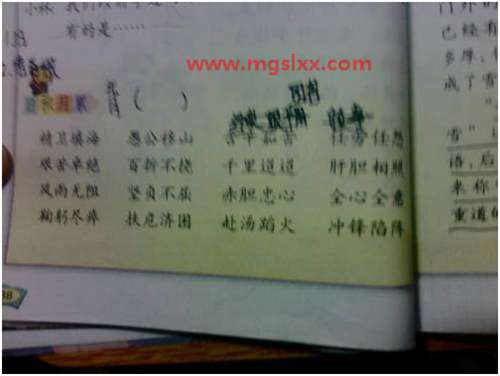 小林
有的是……
www.mgslxx.com
日积月累
( )
精卫填海 愚公移山 含辛茹苦 任劳任怨
艰苦卓绝 百折不挠 千里迢迢 肝胆相照
风雨无阻 坚贞不屈 赤胆忠心 全心全意
鞠躬尽瘁 扶危济困 赴汤蹈火 冲锋陷阵
门外的
已经有
多厚,
成了雪
雪”
语,后
来称
重道的